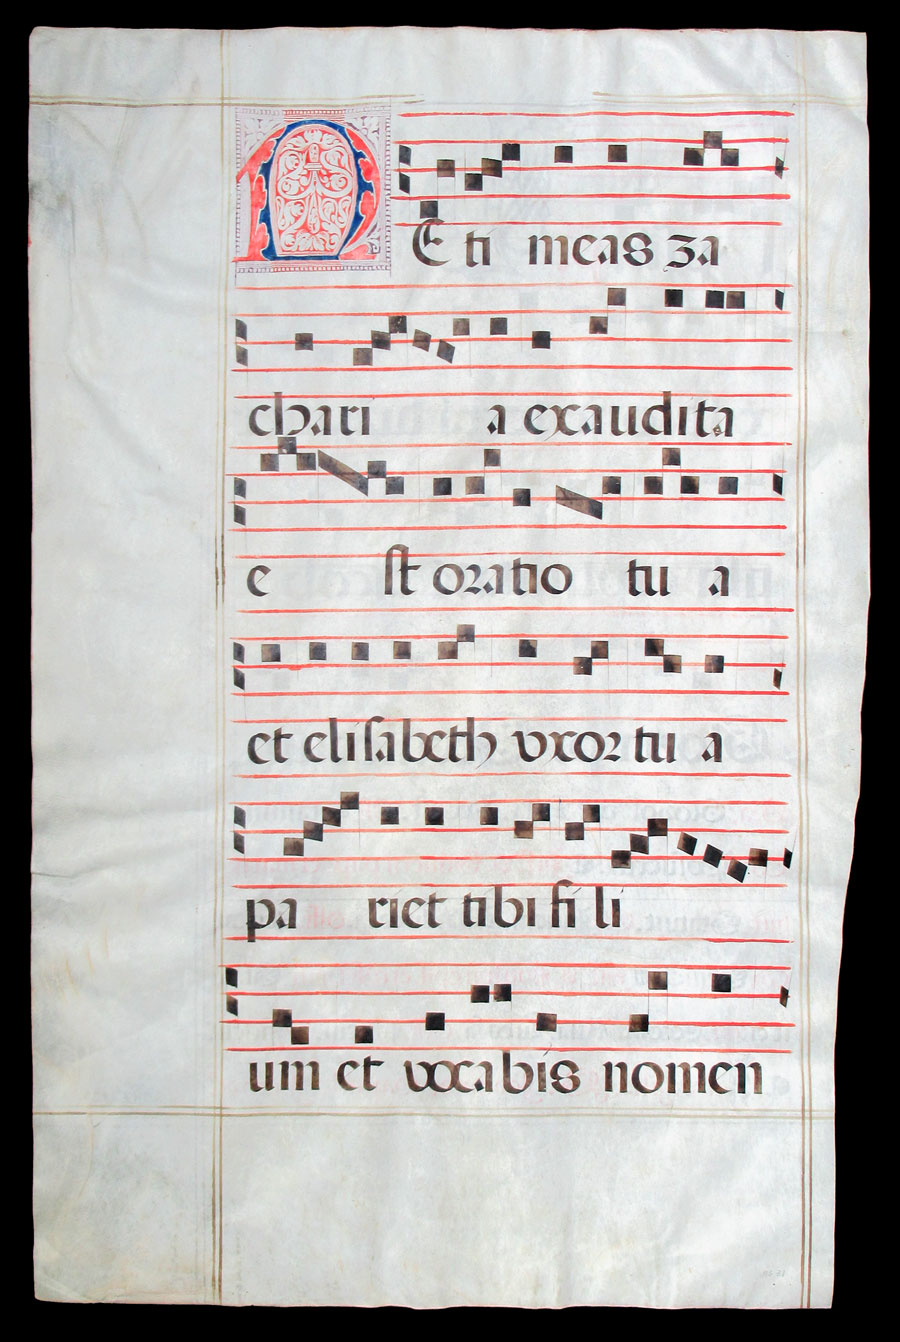 NE timeas za
chari a exaudita
e st oratio tu a
et elisabeth vxor tu a
pa riet tibi fi li
um et vocabis nomen